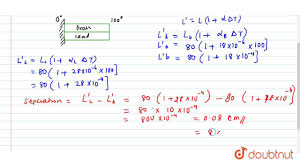 0° 100°
brass
lead
L' = L (1 + α ΔT)
L'b = L0 (1 + αB ΔT)
L'b = 80 [1 + 18×10⁻⁶ ×100]
L'b = 80 (1 + 18×10⁻⁴)
L'L = L0 (1 + αL ΔT)
= 80 [1 + 28×10⁻⁶ ×100]
= 80 (1 + 28×10⁻⁴)
Separation = L'L - L'b = 80 (1+28×10⁻⁴) - 80 (1+28×10⁻⁶)
= 80 × 10 ×10⁻⁴
= 800×10⁻⁴ = 0.08 cm
= 8
doubtnut